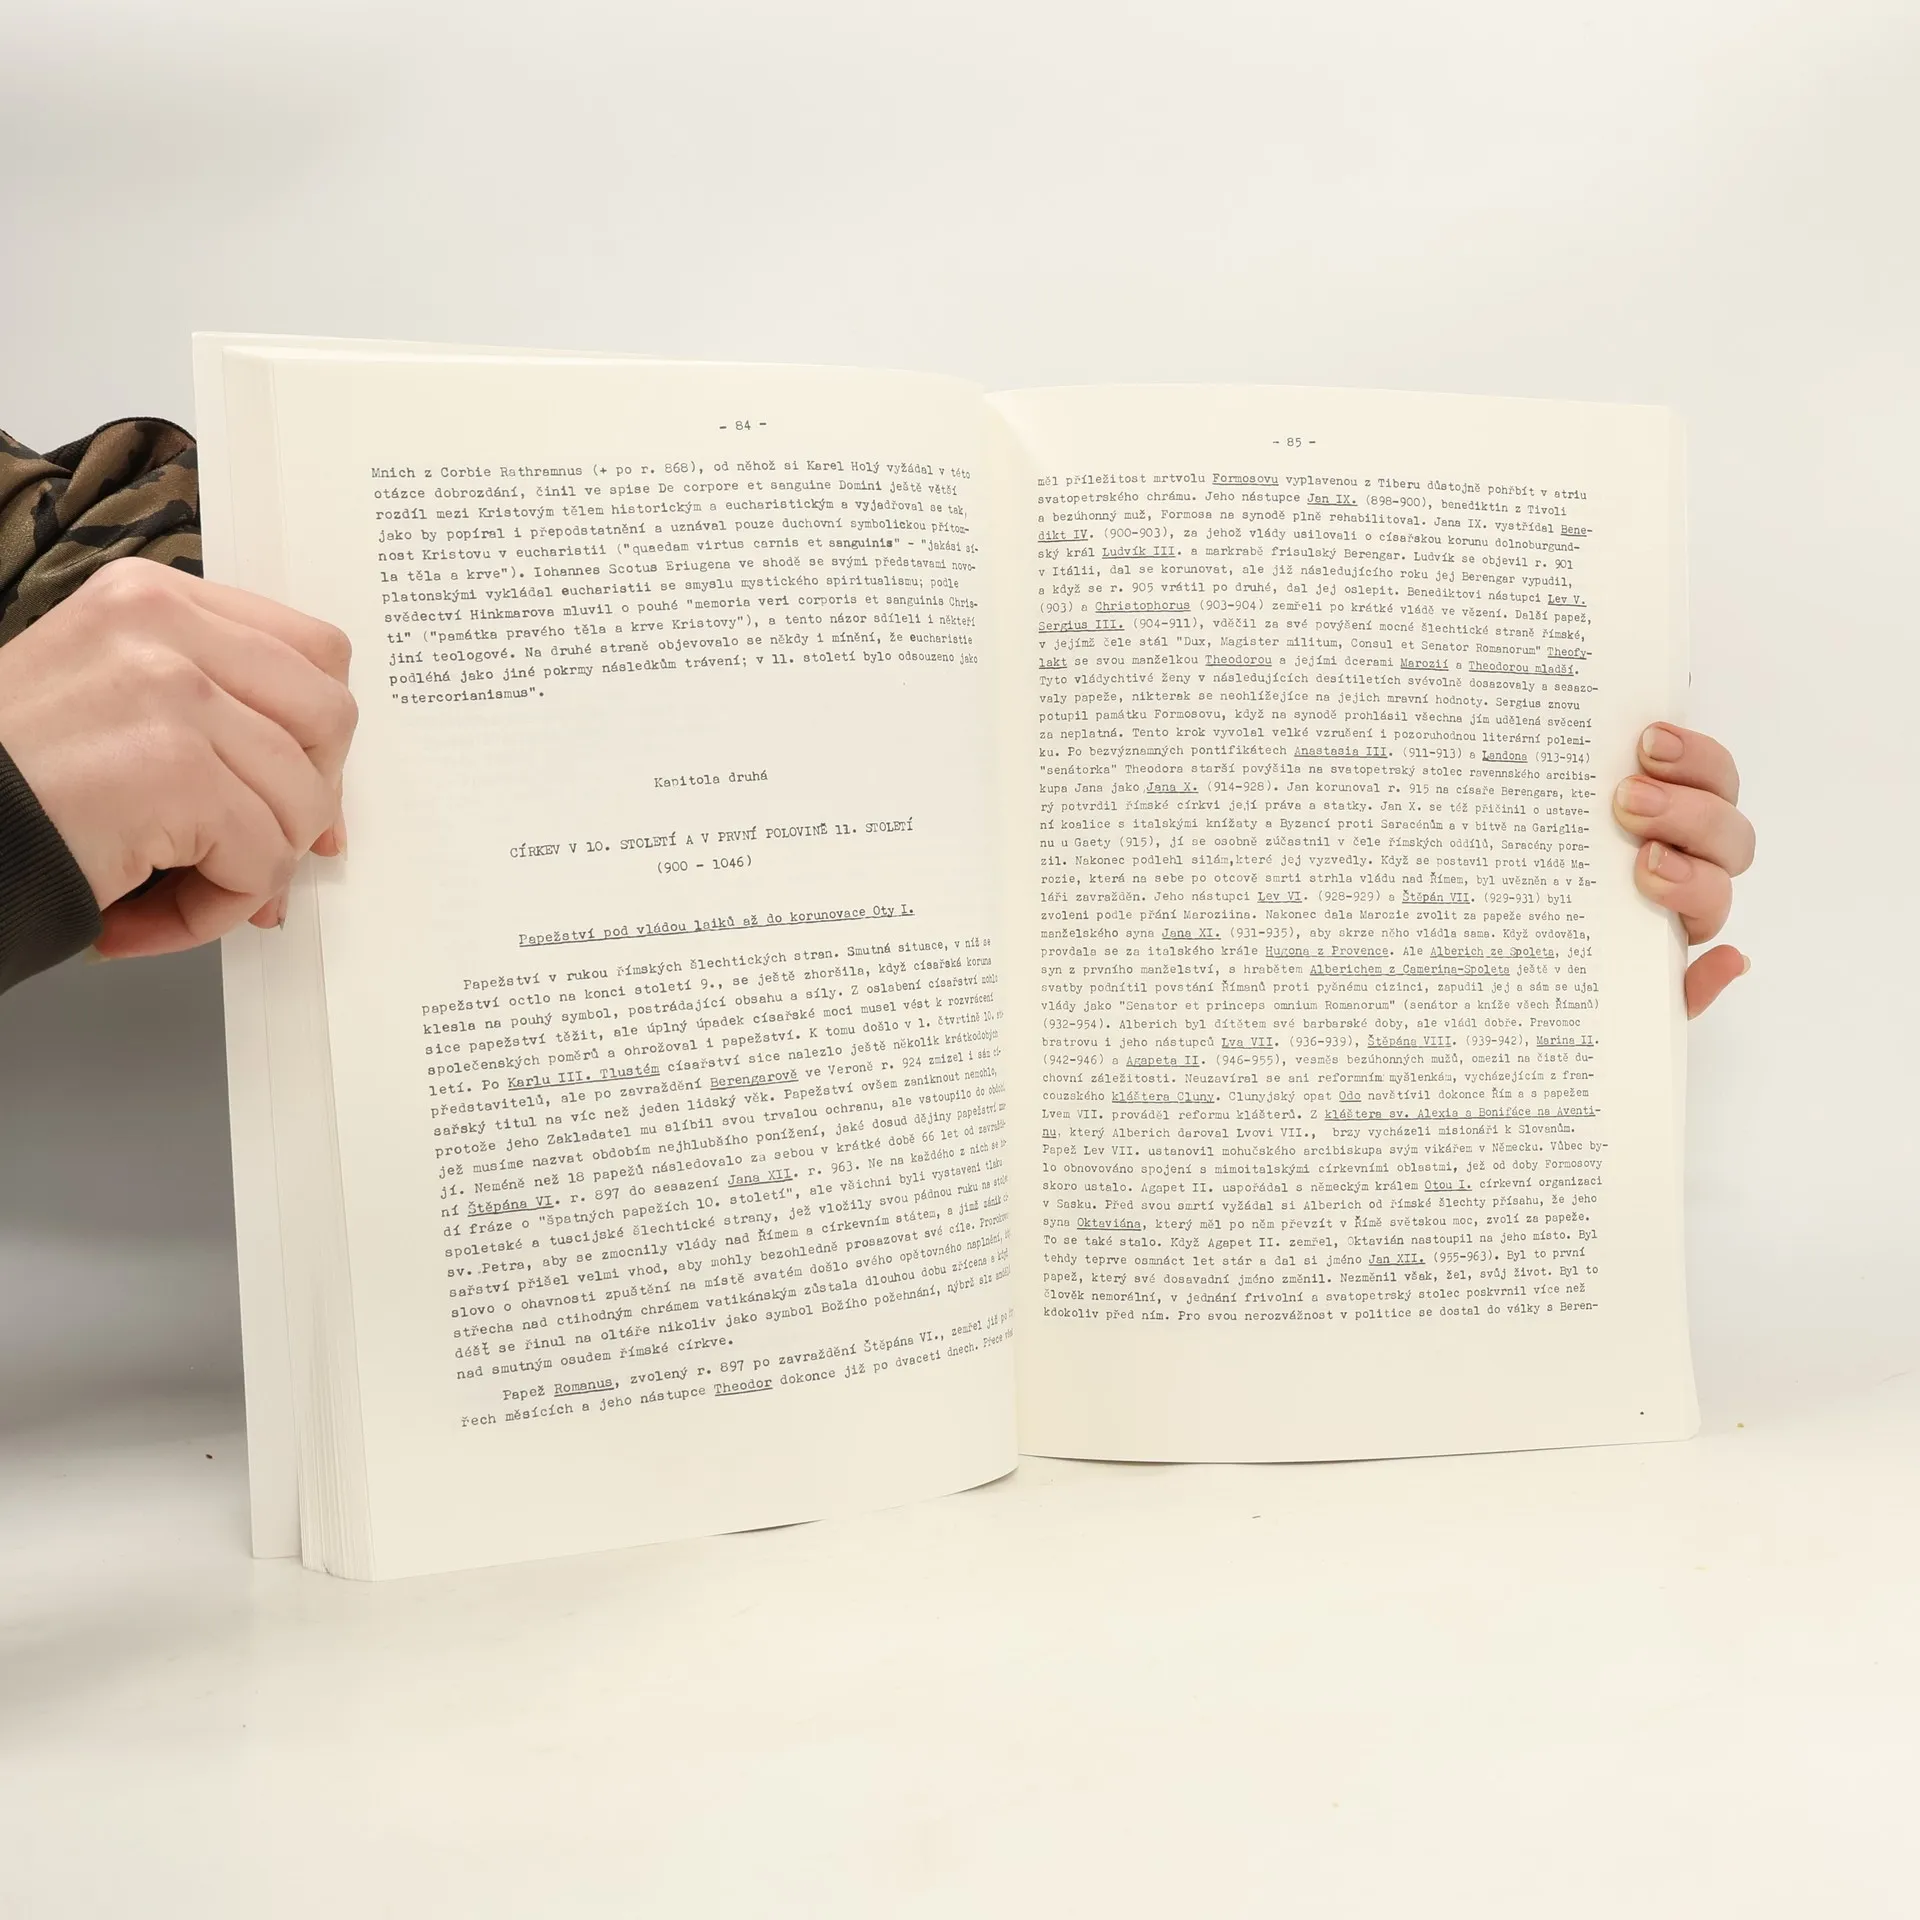 - 84 -
Mnich z Corbie Rathramnus (+ po r. 868), od něhož si Karel Holý vyžádal v této
otázce dobrozdání, činil ve spise De corpore et sanguine Domini ještě větší
rozdíl mezi Kristovým tělem historickým a eucharistickým a vyjadřoval se tak,
jako by popíral i přepodstatnění a uznával pouze duchovní symbolickou přítom-
nost Kristovu v eucharistii ("quaedam virtus carnis et sanguinis" - "jakási sí-
la těla a krve"). Iohannes Scotus Eriugena ve shodě se svými představami novo-
platonskými vykládal eucharistii se smyslu mystického spiritualismu; podle
svědectví Hinkmarova mluvil o pouhé "memoria veri corporis et sanguinis Chris-
ti" ("památka pravého těla a krve Kristovy"), a tento názor sdíleli i někteří
jiní teologové. Na druhé straně objevovalo se někdy i mínění, že eucharistie
podléhá jako jiné pokrmy následkům trávení; v 11. století bylo odsouzeno jako
"stercorianismus".
Kapitola druhá
CÍRKEV V 10. STOLETÍ A V PRVNÍ POLOVINĚ 11. STOLETÍ
(900 - 1046)
Papežství pod vládou laiků až do korunovace Oty I.
Papežství v rukou římských šlechtických stran. Smutná situace, v níž se
papežství octlo na konci století 9., se ještě zhoršila, když císařská koruna
klesla na pouhý symbol, postrádající obsahu a síly. Z oslabení císařství mohlo
sice papežství těžit, ale úplný úpadek císařské moci musel vést k rozvrácení
společenských poměrů a ohrožoval i papežství. K tomu došlo v 1. čtvrtině 10. sto-
letí. Po Karlu III. Tlustém císařství sice nalezlo ještě několik krátkodobých
představitelů, ale po zavraždění Berengarově ve Veroně r. 924 zmizel i sám cí-
sařský titul na víc než jeden lidský věk. Papežství ovšem zaniknout nemohlo,
protože jeho Zakladatel mu slíbil svou trvalou ochranu, ale vstoupilo do období,
jež musíme nazvat obdobím nejhlubšího ponížení, jaké dosud dějiny papežství zna-
jí. Neméně než 18 papežů následovalo za sebou v krátké době 66 let od zavraždě-
ní Štěpána VI. r. 897 do sesazení Jana XII. r. 963. Ne na každého z nich se
dí fráze o "špatných papežích 10. století", ale všichni byli vystaveni tlaku
spoletské a tuscijské šlechtické strany, jež vložily svou pádnou ruku na stolec
sv. Petra, aby se zmocnily vlády nad Římem a církevním státem, a jimž zánik cí-
sařství přišel velmi vhod, aby mohly bezohledně prosazovat své cíle. Prorokovo
slovo o ohavnosti zpuštění na místě svatém došlo svého opětovného naplnění,
střecha nad ctihodným chrámem vatikánským zůstala dlouhou dobu zřícena a když
déšť se řinul na oltáře nikoliv jako symbol Božího požehnání, nýbrž slz andělů
nad smutným osudem římské církve.
Papež Romanus, zvolený r. 897 po zavraždění Štěpána VI., zemřel již po
řech měsících a jeho nástupce Theodor dokonce již po dvaceti dnech. Přece však
- 85 -
měl příležitost mrtvolu Formosovu vyplavenou z Tiberu důstojně pohřbít v atriu
svatopetrského chrámu. Jeho nástupce Jan IX. (898-900), benediktin z Tivoli
a bezúhonný muž, Formosa na synodě plně rehabilitoval. Jana IX. vystřídal Bene-
dikt IV. (900-903), za jehož vlády usilovali o císařskou korunu dolnoburgund-
ský král Ludvík III. a markrabě frisulský Berengar. Ludvík se objevil r. 901
v Itálii, dal se korunovat, ale již následujícího roku jej Berengar vypudil,
a když se r. 905 vrátil po druhé, dal jej oslepit. Benediktovi nástupci Lev V.
(903) a Christophorus (903-904) zemřeli po krátké vládě ve vězení. Další papež,
Sergius III. (904-911), vděčil za své povýšení mocné šlechtické straně římské,
v jejímž čele stál "Dux, Magister militum, Consul et Senator Romanorum" Theofy-
lakt se svou manželkou Theodorou a jejími dcerami Marozií a Theodorou mladší.
Tyto vládychtivé ženy v následujících desítiletích svévolně dosazovaly a sesazo-
valy papeže, nikterak se neohlížejíce na jejich mravní hodnoty. Sergius znovu
potupil památku Formosovu, když na synodě prohlásil všechna jím udělená svěcení
za neplatná. Tento krok vyvolal velké vzrušení i pozoruhodnou literární polemi-
ku. Po bezvýznamných pontifikátech Anastasia III. (911-913) a Landona (913-914)
"senátorka" Theodora starší povýšila na svatopetrský stolec ravennského arcibis-
kupa Jana jako Jana X. (914-928). Jan korunoval r. 915 na císaře Berengara, kte-
rý potvrdil římské církvi její práva a statky. Jan X. se též přičinil o ustave-
ní koalice s italskými knížaty a Byzancí proti Saracénům a v bitvě na Gariglia-
nu u Gaety (915), jí se osobně zúčastnil v čele římských oddílů, Saracény pora-
zil. Nakonec podlehl silám,které jej vyzvedly. Když se postavil proti vládě Ma-
rozie, která na sebe po otcově smrti strhla vládu nad Římem, byl uvězněn a v ža-
láři zavražděn. Jeho nástupci Lev VI. (928-929) a Štěpán VII. (929-931) byli
zvoleni podle přání Maroziina. Nakonec dala Marozie zvolit za papeže svého ne-
manželského syna Jana XI. (931-935), aby skrze něho vládla sama. Když ovdověla,
provdala se za italského krále Hugona z Provence. Ale Alberich ze Spoleta, její
syn z prvního manželství, s hrabětem Alberichem z Camerina-Spoleta ještě v den
svatby podnítil povstání Římanů proti pyšnému cizinci, zapudil jej a sám se ujal
vlády jako "Senator et princeps omnium Romanorum" (senátor a kníže všech Římanů)
(932-954). Alberich byl dítětem své barbarské doby, ale vládl dobře. Pravomoc
bratrovu i jeho nástupců Lva VII. (936-939), Štěpána VIII. (939-942), Marina II.
(942-946) a Agapeta II. (946-955), vesměs bezúhonných mužů, omezil na čistě du-
chovní záležitosti. Neuzavíral se ani reformním myšlenkám, vycházejícím z fran-
couzského kláštera Cluny. Clunyjský opat Odo navštívil dokonce Řím a s papežem
Lvem VII. prováděl reformu klášterů. Z kláštera sv. Alexia a Bonifáce na Aventi-
nu, který Alberich daroval Lvovi VII., brzy vycházeli misionáři k Slovanům.
Papež Lev VII. ustanovil mohučského arcibiskupa svým vikářem v Německu. Vůbec by-
lo obnovováno spojení s mimoitalskými církevními oblastmi, jež od doby Formosovy
skoro ustalo. Agapet II. uspořádal s německým králem Otou I. církevní organizaci
v Sasku. Před svou smrtí vyžádal si Alberich od římské šlechty přísahu, že jeho
syna Oktaviána, který měl po něm převzít v Římě světskou moc, zvolí za papeže.
To se také stalo. Když Agapet II. zemřel, Oktavián nastoupil na jeho místo. Byl
tehdy teprve osmnáct let stár a dal si jméno Jan XII. (955-963). Byl to první
papež, který své dosavadní jméno změnil. Nezměnil však, žel, svůj život. Byl to
člověk nemorální, v jednání frivolní a svatopetrský stolec poskvrnil více než
kdokoliv před ním. Pro svou nerozvážnost v politice se dostal do války s Beren-